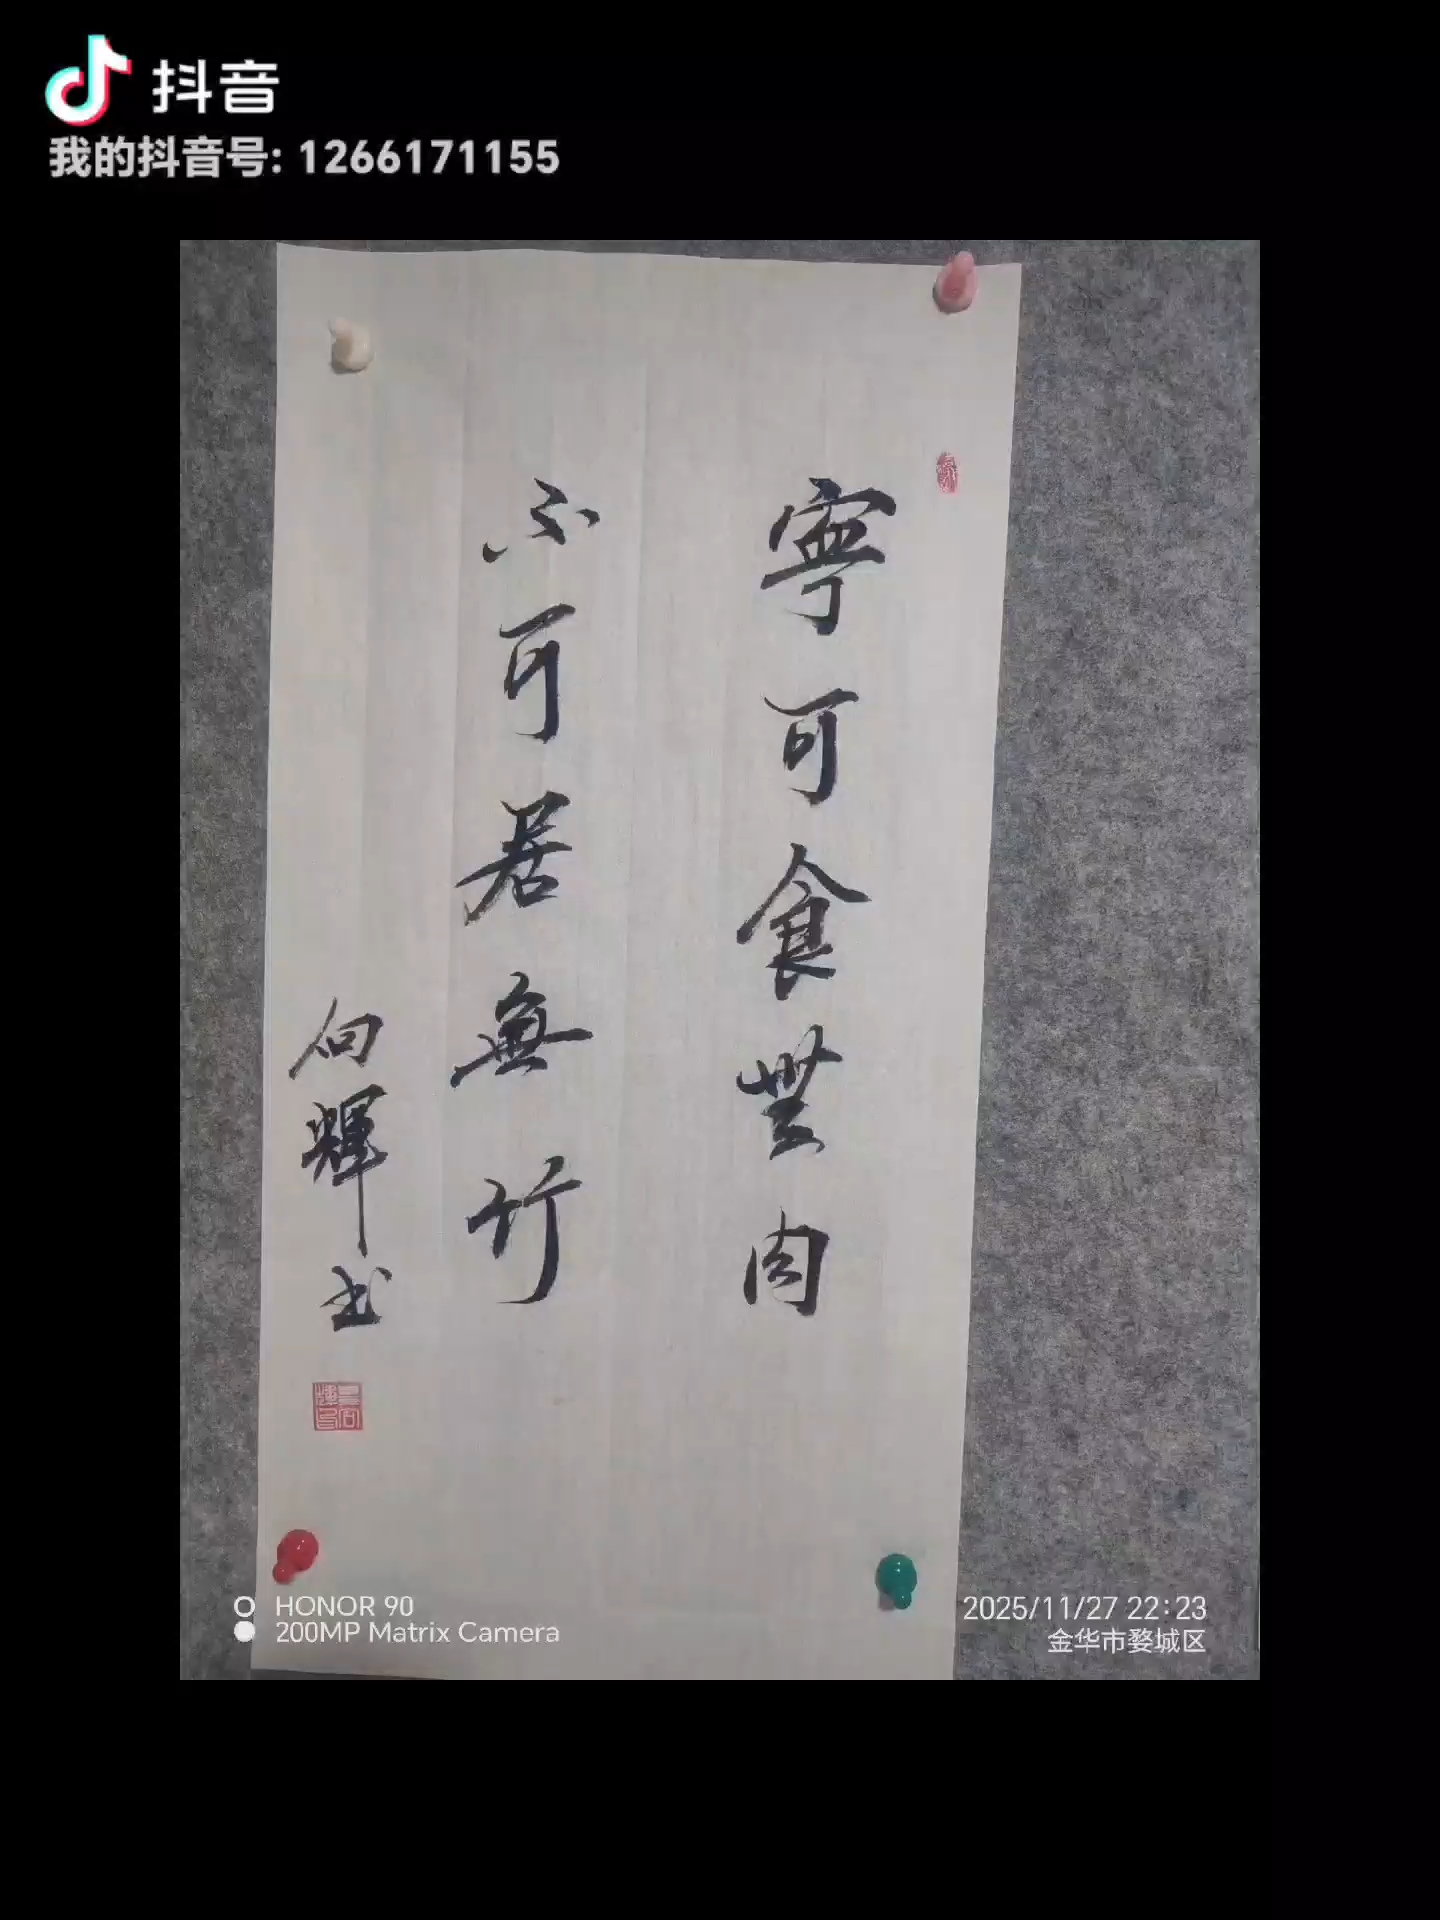 抖音
我的抖音号: 1266171155
寧可食無肉
不可居無竹
向輝书
HONOR 90
200MP Matrix Camera
2025/11/27 22:23
金华市婺城区